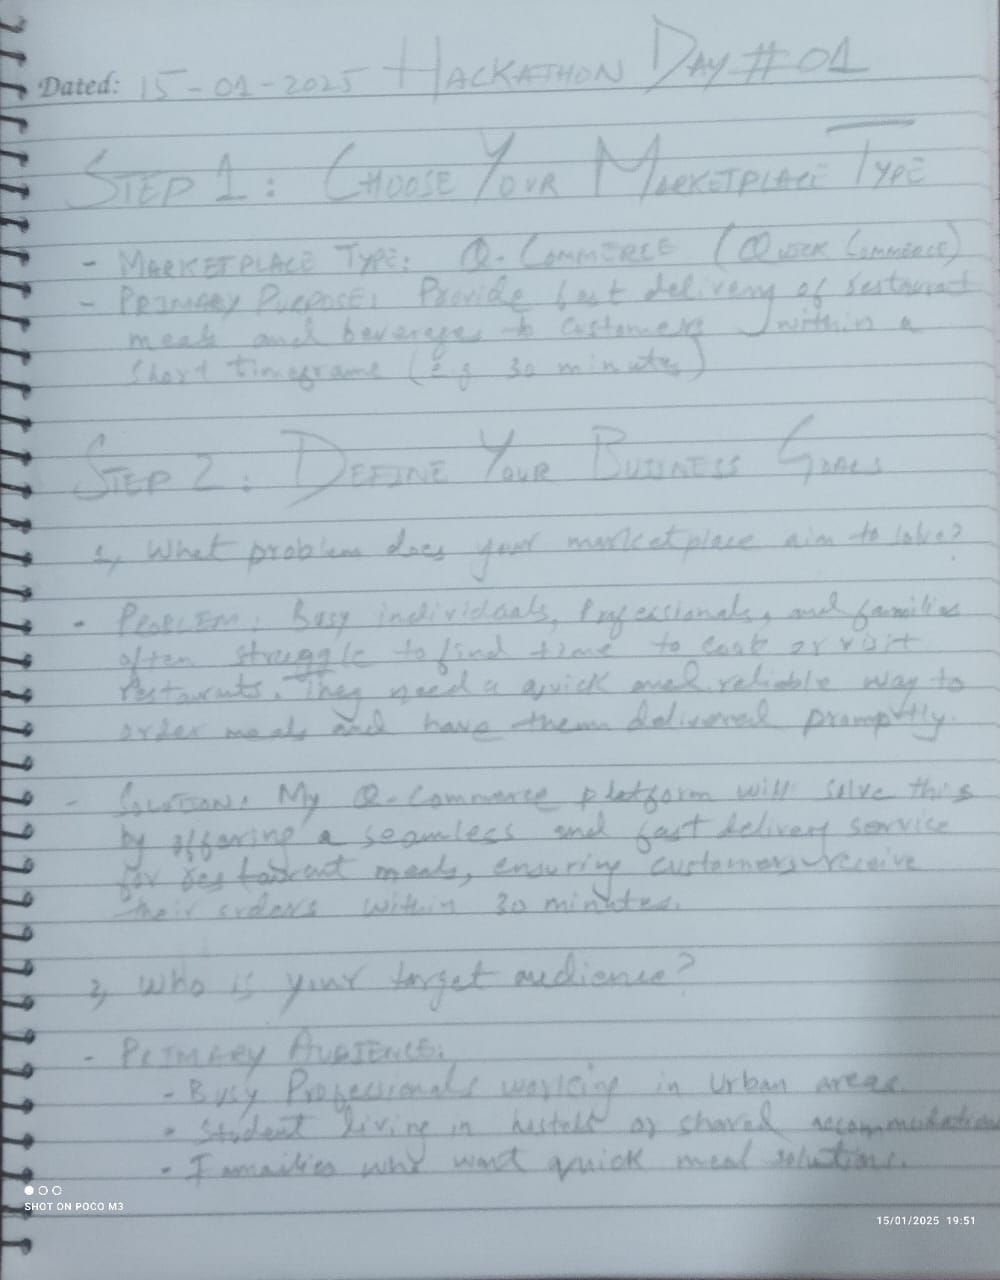 Dated: 15-01-2025 HACKATHON DAY #01
STEP 1: CHOOSE YOUR MARKETPLACE TYPE
- MARKETPLACE TYPE: Q-COMMERCE (Quick Commerce)
- PRIMARY PURPOSE: Provide fast delivery of restaurant
meals and beverages to customers within a
short timeframe (e.g 30 minutes)
STEP 2: DEFINE YOUR BUSINESS GOALS
1, What problem does your marketplace aim to solve?
- PROBLEM: Busy individuals, Professionals, and families
often struggle to find time to cook or visit
restaurants. They need a quick and reliable way to
order meals and have them delivered promptly.
- SOLUTION: My Q-Commerce platform will solve this
by offering a seamless and fast delivery service
for restaurant meals, ensuring customers receive
their orders within 30 minutes.
2, Who is your target audience?
- PRIMARY AUDIENCE:
- Busy Professionals working in Urban areas
- Student living in hostels or shared accommodation
- Families who want quick meal solutions.
SHOT ON POCO M3
15/01/2025 19:51